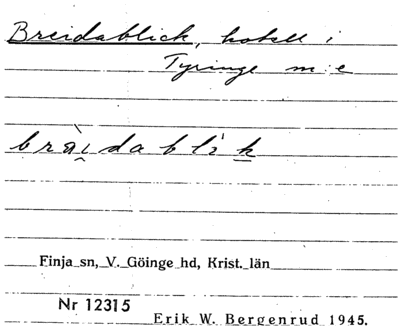 Breidablick, hotell i
Tyringe m:e
bràı̯dablı̀k
Finja sn, V. Göinge hd, Krist. län
Nr 12315
Erik W. Bergenrud 1945.